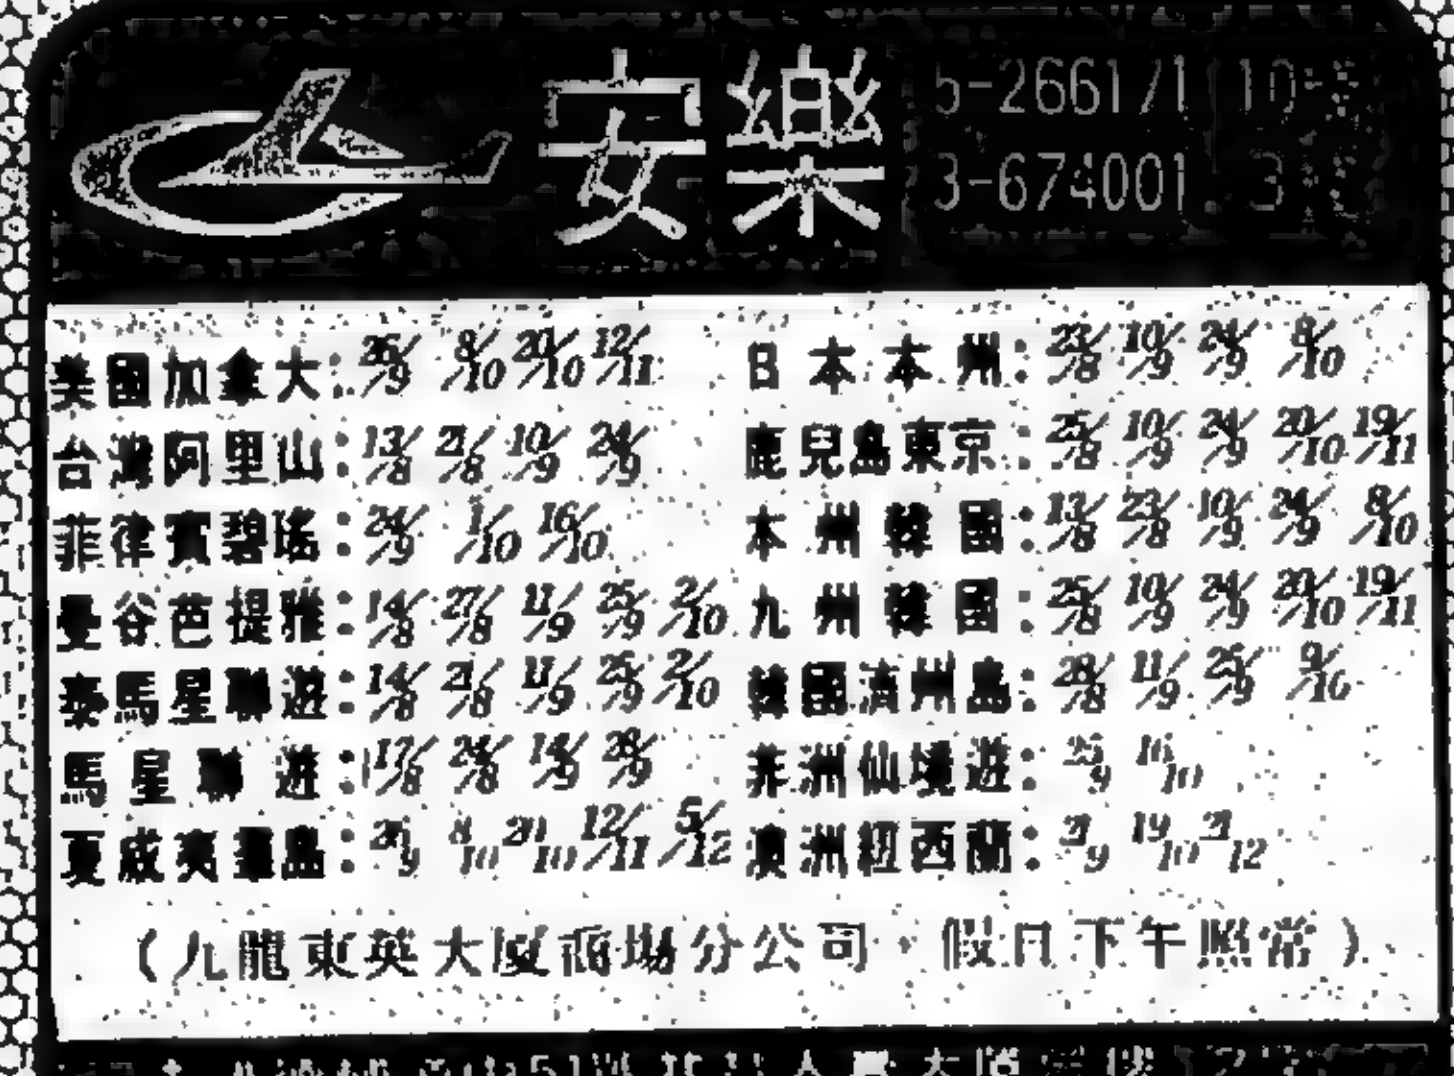 安樂
5-266171
3-674001
美國加拿大: 26/9 8/10 20/10 12/11
台灣阿里山: 13/8 21/8 10/9 24/9
菲律賓碧瑤: 24/9 1/10 16/10
曼谷芭提雅: 14/8 27/8 11/9 25/9 2/10
泰馬星聯遊: 14/8 21/8 11/9 25/9 2/10
馬星聯遊: 17/8 24/8 14/9 28/9
夏威夷羣島: 8/10 20/10 12/11 5/12
日本本州: 23/8 10/9 24/9 8/10
鹿兒島東京: 25/8 10/9 24/9 20/10 19/11
本州韓國: 13/8 23/8 10/9 24/9 8/10
九州韓國: 25/8 10/9 24/9 20/10 19/11
韓國濟州島: 28/8 11/9 25/9 9/10
非洲仙境遊: 25/9 16/10
澳洲紐西蘭: 21/9 19/10 21/12
(九龍東英大廈商場分公司·假日下午照常)